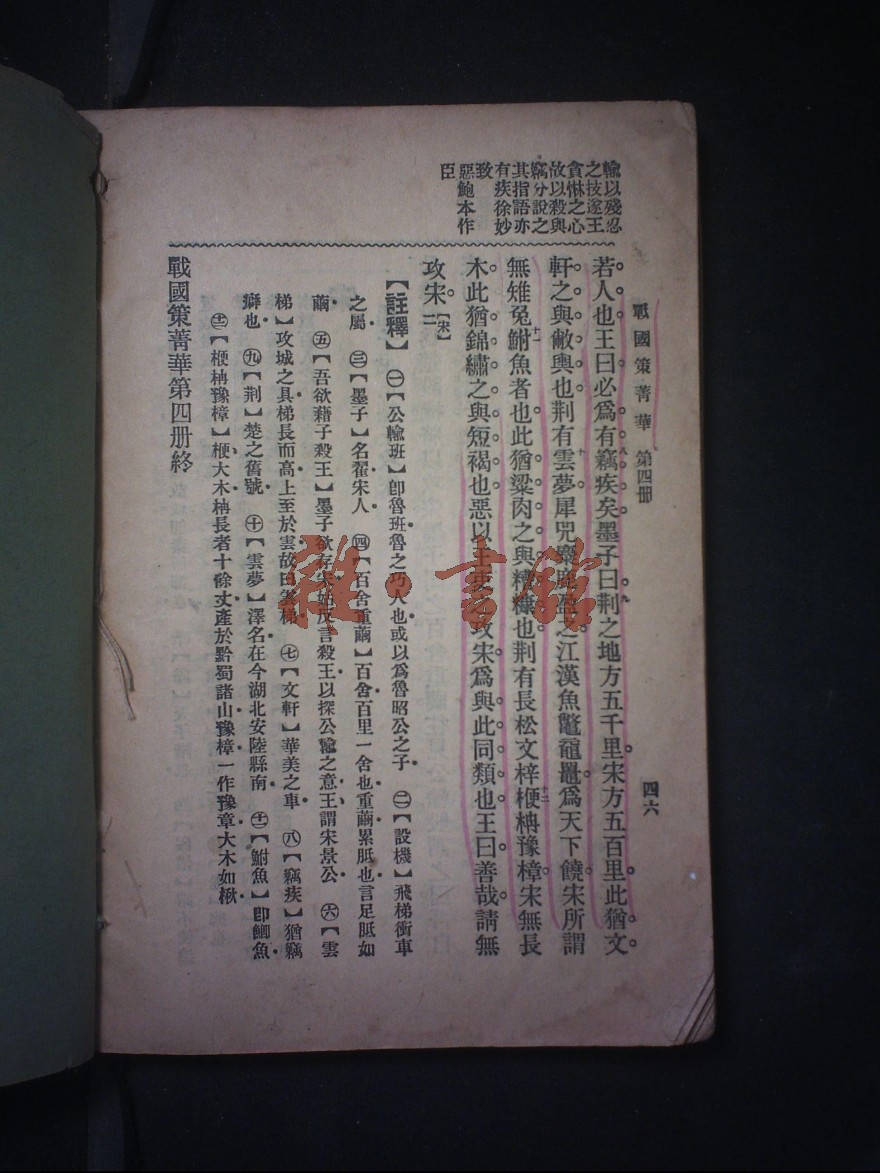 戰國策菁華 第四册
四六
輸以殘忍
之技遂王
貪惏之心
故以殺與
竊分說之
其指語亦
有疾徐妙
致
惡鮑本作
臣
若人也王曰必爲有竊疾矣墨子曰荆之地方五千里宋方五百里此猶文
軒之與敝輿也荆有雲夢犀兕麋鹿盈之江漢魚鼈黿鼉爲天下饒宋所謂
無雉兔鮒魚者也此猶粱肉之與糟糠也荆有長松文梓楩柟豫樟宋無長
木此猶錦繡之與短褐也惡以王吏之攻宋爲與此同類也王曰善哉請無
攻宋 【宋】二
【註釋】 ㊀【公輸班】卽魯班魯之巧人也或以爲魯昭公之子 ㊁【設機】飛梯衝車
之屬 ㊂【墨子】名翟宋人 ㊃【百舍重繭】百舍百里一舍也重繭累胝也言足胝如
繭 ㊄【吾欲藉子殺王】墨子欲存宋始反言殺王以探公輸之意王謂宋景公 ㊅【雲
梯】攻城之具梯長而高上至於雲故曰雲梯 ㊆【文軒】華美之車 ㊇【竊疾】猶竊
癖也 ㊈【荆】楚之舊號 ㊉【雲夢】澤名在今湖北安陸縣南 ⑪【鮒魚】卽鯽魚
⑫【楩柟豫樟】楩大木柟長者十餘丈產於黔蜀諸山豫樟一作豫章大木如楸
戰國策菁華第四册終
雜·書館